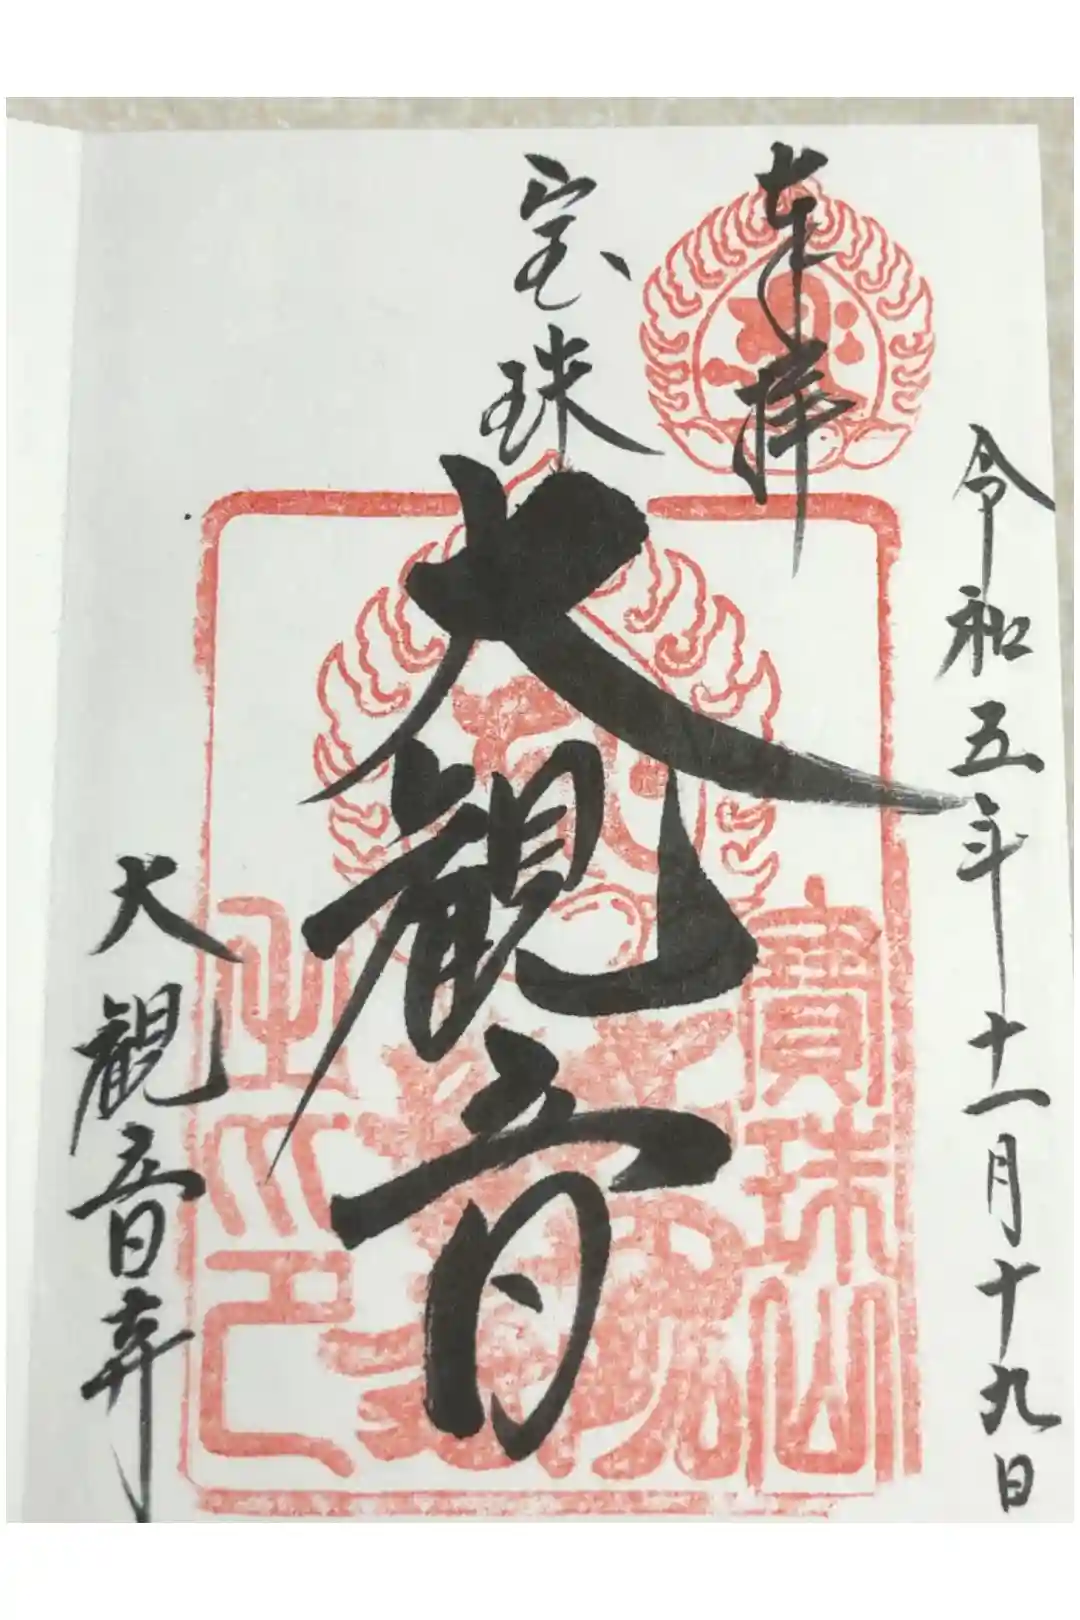 令和五年十一月十九日
奉拝
宝珠
大観音
大観音寺
寶珠山
之印